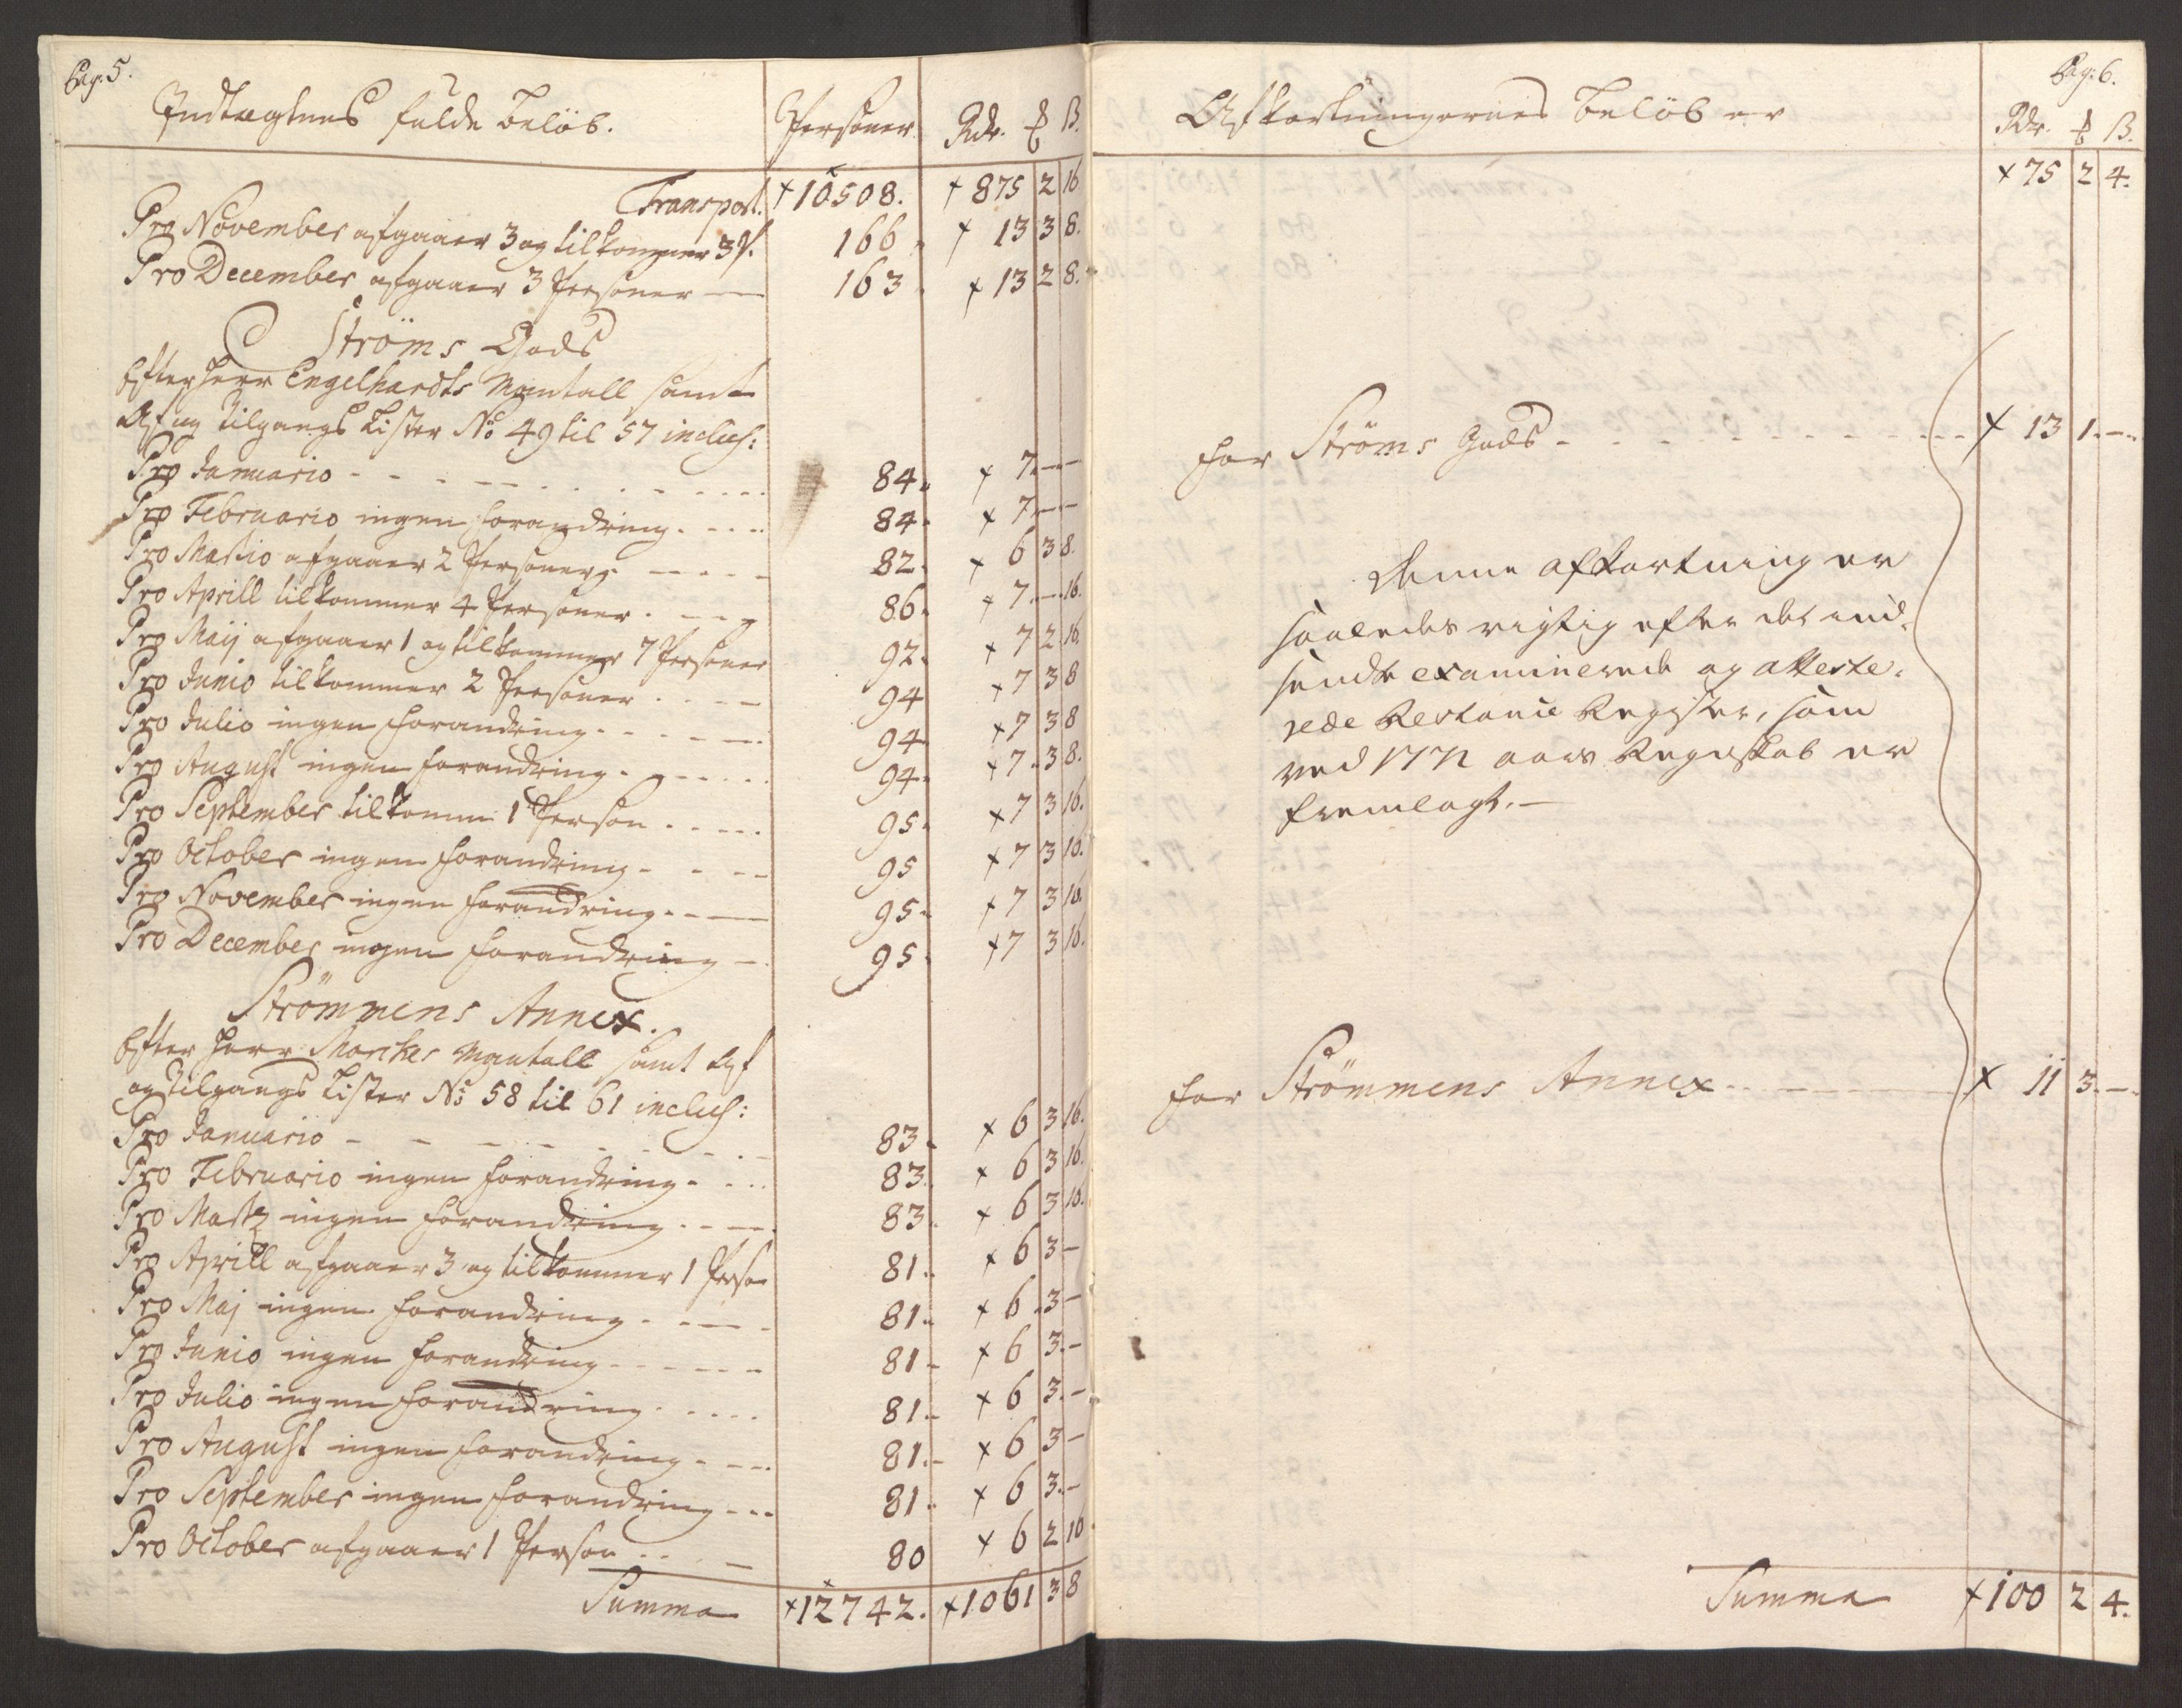 Pag: 5.
Indtægtens fulde Beløb. Personer. Rdr. ₰ ß.
Transport. × 10508. × 875 2 16
Pro November afgaaer 3 og tilkommer 3 P. 166 × 13 3 8.
Pro December afgaaer 3 Personer — 163 × 13 2 8.
Ströms Gods
Efter Herr Engelhardts Mantall samt
Af og Tilgangs Lister No 49 til 57 inclus:
Pro Januario - - - 84. × 7. — —
Pro Februario ingen forandring. - - - 84. × 7. — —
Pro Martio afgaaer 2 Personer. - - - 82. × 6 3 8.
Pro Aprill tilkommer 4 Personer. - - 86. × 7. — 16.
Pro Maij afgaaer 1 og tilkommer 7 Personer 92. × 7 2 16.
Pro Junio tilkommer 2 Personer - - - 94 × 7 3 8
Pro Julio ingen forandring. - - - 94. × 7 3 8
Pro August ingen forandring. - - - 94. × 7. 3 8.
Pro September tilkomm 1 Person - - - 95. × 7 3 16.
Pro October ingen forandring. - - - 95 × 7 3 16.
Pro November ingen forandring. - - - 95. × 7 3 16.
Pro December ingen forandring - 95. × 7 3 16.
Strömmens Annex.
Efter Herr Morches Mantall samt Af
og Tilgangs Lister No 58 til 61 inclus:
Pro Januario - - - 83. × 6 3 16.
Pro Februario ingen forandring. - - - 83. × 6 3 16.
Pro Martz ingen forandring. - - - 83. × 6 3 16.
Pro Aprill afgaaer 3 og tilkommer 1 Person 81. × 6 3 —
Pro Maj ingen forandring. - - - 81. × 6. 3 —
Pro Junio ingen forandring - - - 81 - × 6 3. —
Pro Julio ingen forandring - - - 81. - × 6 3. —
Pro August ingen forandring. - - - 81. - × 6 3 —
Pro September ingen forandring - - - 81. × 6 3. —
Pro October afgaaer 1 Person - - - 80 × 6 2 16
Summa × 12742. × 1061 3 8
Pag: 6.
Afkortningernes Beløb er Rdr. ₰ ß.
× 75 2 4.
for Ströms Gods - - - × 13 1. —
Denne Afkortning er
saaledes rigtig efter det ind-
sendte examinerede og atteste-
rede Restance Register, som
ved 1772 aars Regnskab er
fremlagt. —
for Strömmens Annex - - - × 11 3. —
Summa × 100 2 4.